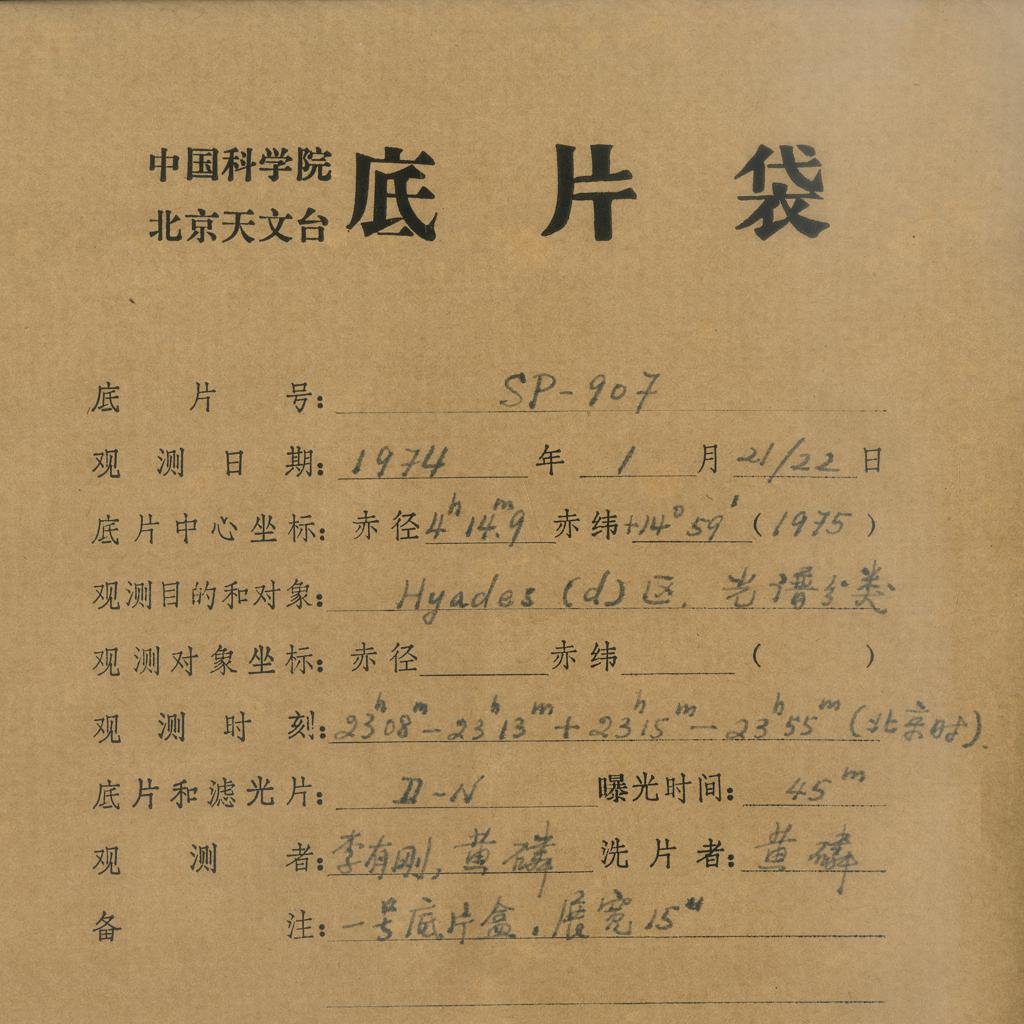 中国科学院
北京天文台
底片袋
底片号: SP-907
观测日期: 1974 年 1 月 21/22 日
底片中心坐标: 赤径 4ʰ 14ᵐ.9 赤纬 +14° 59′ (1975)
观测目的和对象: Hyades (d) 区. 光谱分类
观测对象坐标: 赤径 赤纬 ( )
观测时刻: 23ʰ08ᵐ - 23ʰ13ᵐ + 23ʰ15ᵐ - 23ʰ55ᵐ (北京时).
底片和滤光片: II-N 曝光时间: 45ᵐ
观测者: 李有刚, 黄磷 洗片者: 黄磷
备注: 一号底片盒. 展宽 15"